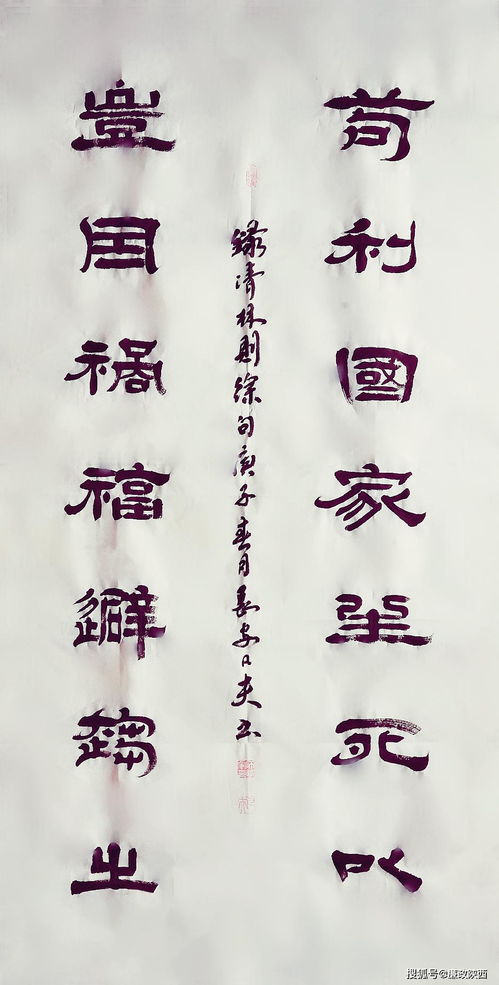 苟利國家坐死以
豈因禍福避趨之
錄清林則徐句庚子春月長安日夫书
搜狐号@廉政陕西